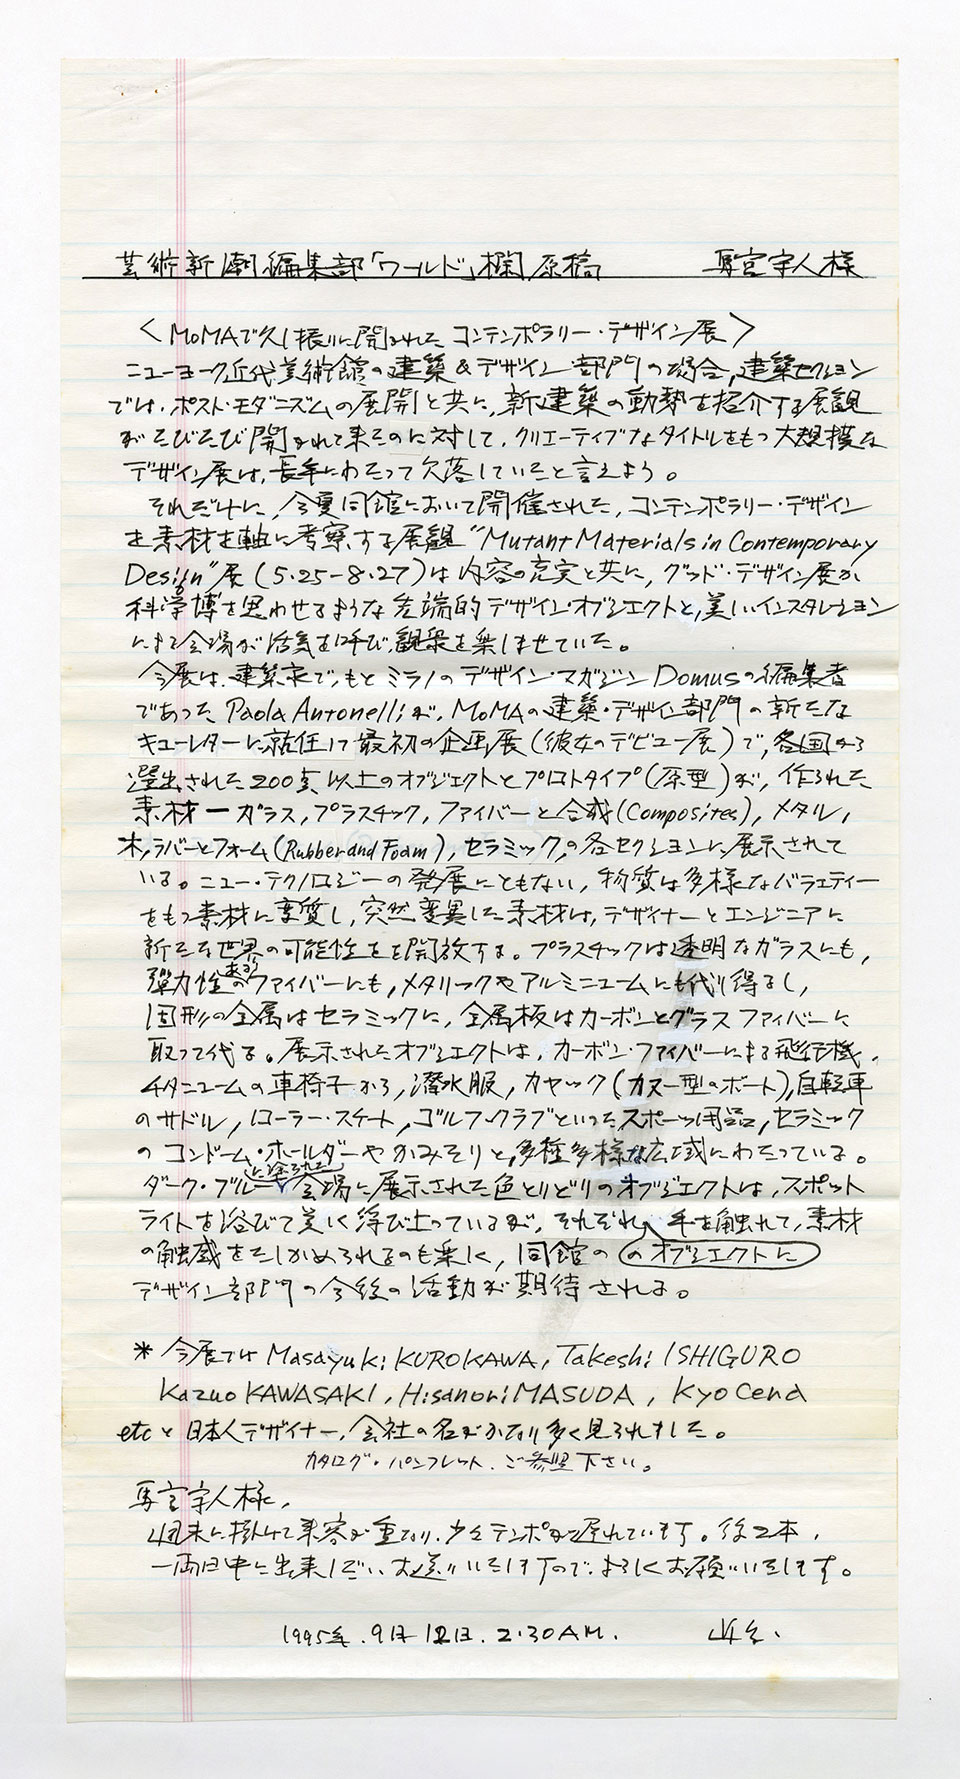 芸術新潮編集部「ワールド」欄原稿 馬宮宇人様
〈MoMAで久し振りに開かれたコンテンポラリー・デザイン展〉
ニューヨーク近代美術館の建築&デザイン部門の場合，建築セクション
では，ポスト・モダニズムの展開と共に，新建築の動勢を紹介する展観
がたびたび開かれて来たのに対して，クリエーティブなタイトルをもつ大規模な
デザイン展は，長年にわたって欠落していたと言えよう。
それだけに，今夏同館において開催された，コンテンポラリー・デザイン
を素材を軸に考察する展観“Mutant Materials in Contemporary
Design”展(5・25-8・27)は内容の充実と共に，グッド・デザイン展か
科学博を思わせるような先端的デザイン・オブジェクトと，美しいインスタレーション
による会場が活気を呼び，観衆を楽しませていた。
今展は，建築家で，もとミラノのデザイン・マガジンDomusの編集者
であったPaola Antonelliが，MoMAの建築・デザイン部門の新たな
キューレターに就任して最初の企画展(彼女のデビュー展)で，各国から
選出された200点以上のオブジェクトとプロトタイプ(原型)が，作られた
素材ーガラス，プラスチック，ファイバーと合成(Composites)，メタル，
木，ラバーとフォーム(Rubber and Foam)，セラミック，の各セクションに展示されて
いる。ニュー・テクノロジーの発展にともない，物質は多様なバラエティー
をもつ素材に変質し，突然変異した素材は，デザイナーとエンジニアに
新たな世界の可能性をを開放する。プラスチックは透明なガラスにも，
弾力性あるファイバーにも，メタリックやアルミニュームにも代り得るし，
固形の金属はセラミックに，金属板はカーボンとグラスファイバーに
取って代る。展示されたオブジェクトは，カーボン・ファイバーによる飛行機，
チタニュームの車椅子から，潜水服，カヤック(カヌー型のボート)，自転車
のサドル，ローラー・スケート，ゴルフ・クラブといったスポーツ用品，セラミック
のコンドーム・ホールダーやかみそりと，多種多様な広域にわたっている。
ダーク・ブルーに塗られた会場に展示された色とりどりのオブジェクトは，スポット
ライトを浴びて美しく浮び上っているが，それぞれのオブジェクトに手を触れて，素材
の触感をたしかめられるのも楽しく，同館の
デザイン部門の今後の活動が期待される。
＊今展では Masayuki KUROKAWA, Takeshi ISHIGURO
Kazuo KAWASAKI, Hisanori MASUDA, KyoCena
etcと日本人デザイナー，会社の名がかなり多く見られました。
カタログ・パンフレット，ご参照下さい。
馬宮宇人様，
週末に掛けて来客が重なり，少々テンポが遅れています。後2本，
一両日中に出来しだい，お送りいたしますので，よろしくお願いいたします。
1995年．9月12日．2:30AM.